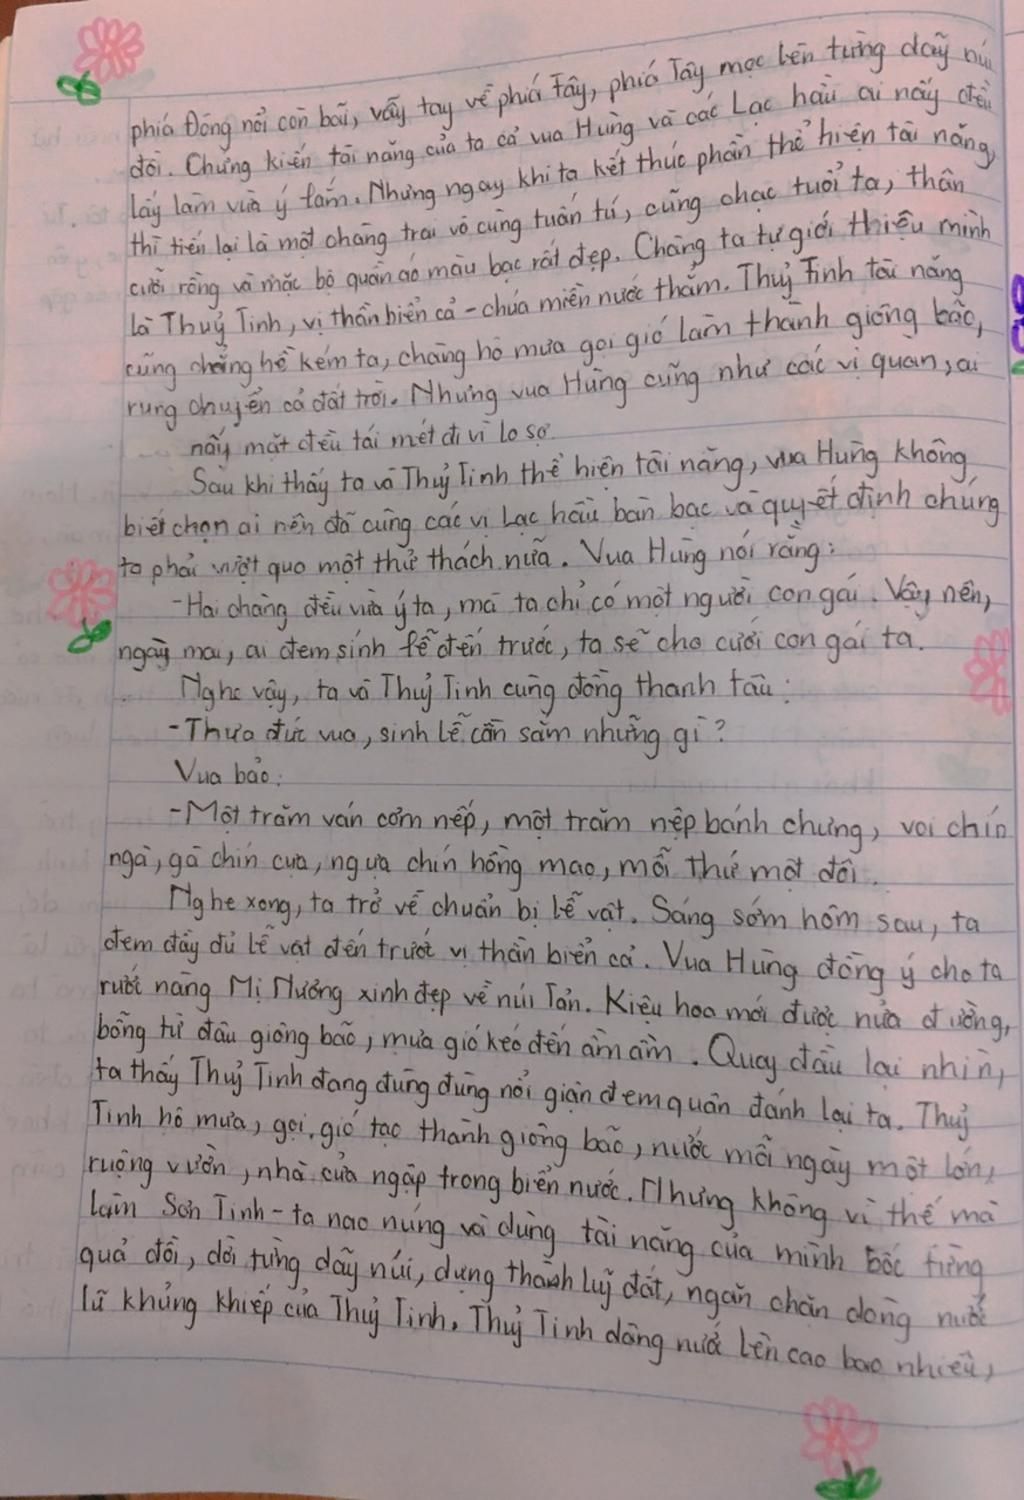 phía Đông nổi cồn bãi, vẫy tay về phía Tây, phía Tây mọc lên từng dãy núi
đồi. Chứng kiến tài năng của ta cả vua Hùng và các Lạc hầu ai nấy đều
lấy làm vừa ý lắm. Nhưng ngay khi ta kết thúc phần thể hiện tài năng,
thì tiến lại là một chàng trai vô cùng tuấn tú, cũng chạc tuổi ta, thân
cưỡi rồng và mặc bộ quần áo màu bạc rất đẹp. Chàng ta tự giới thiệu mình
là Thuỷ Tinh, vị thần biển cả - chúa miền nước thẳm. Thuỷ Tinh tài năng
cũng chẳng hề kém ta, chàng hô mưa gọi gió làm thành giông bão,
rung chuyển cả đất trời. Nhưng vua Hùng cũng như các vị quan, ai
nấy mặt đều tái mét đi vì lo sợ.
Sau khi thấy ta và Thuỷ Tinh thể hiện tài năng, vua Hùng không
biết chọn ai nên đã cùng các vị Lạc hầu bàn bạc và quyết định chúng
ta phải vượt qua một thử thách nữa. Vua Hùng nói rằng:
- Hai chàng đều vừa ý ta, mà ta chỉ có một người con gái. Vậy nên,
ngày mai, ai đem sính lễ đến trước, ta sẽ cho cưới con gái ta.
Nghe vậy, ta và Thuỷ Tinh cùng đồng thanh tâu:
- Thưa đức vua, sính lễ cần sắm những gì?
Vua bảo:
- Một trăm ván cơm nếp, một trăm nệp bánh chưng, voi chín
ngà, gà chín cựa, ngựa chín hồng mao, mỗi thứ một đôi.
Nghe xong, ta trở về chuẩn bị lễ vật. Sáng sớm hôm sau, ta
đem đầy đủ lễ vật đến trước vị thần biển cả. Vua Hùng đồng ý cho ta
rước nàng Mị Nương xinh đẹp về núi Tản. Kiệu hoa mới được nửa đường,
bỗng từ đâu giông bão, mưa gió kéo đến ầm ầm. Quay đầu lại nhìn,
ta thấy Thuỷ Tinh đang đùng đùng nổi giận đem quân đánh lại ta. Thuỷ
Tinh hô mưa, gọi gió tạo thành giông bão, nước mỗi ngày một lớn,
ruộng vườn, nhà cửa ngập trong biển nước. Nhưng không vì thế mà
làm Sơn Tinh - ta nao núng và dùng tài năng của mình bốc từng
quả đồi, dời từng dãy núi, dựng thành luỹ đất, ngăn chặn dòng nước
lũ khủng khiếp của Thuỷ Tinh. Thuỷ Tinh dâng nước lên cao bao nhiêu,